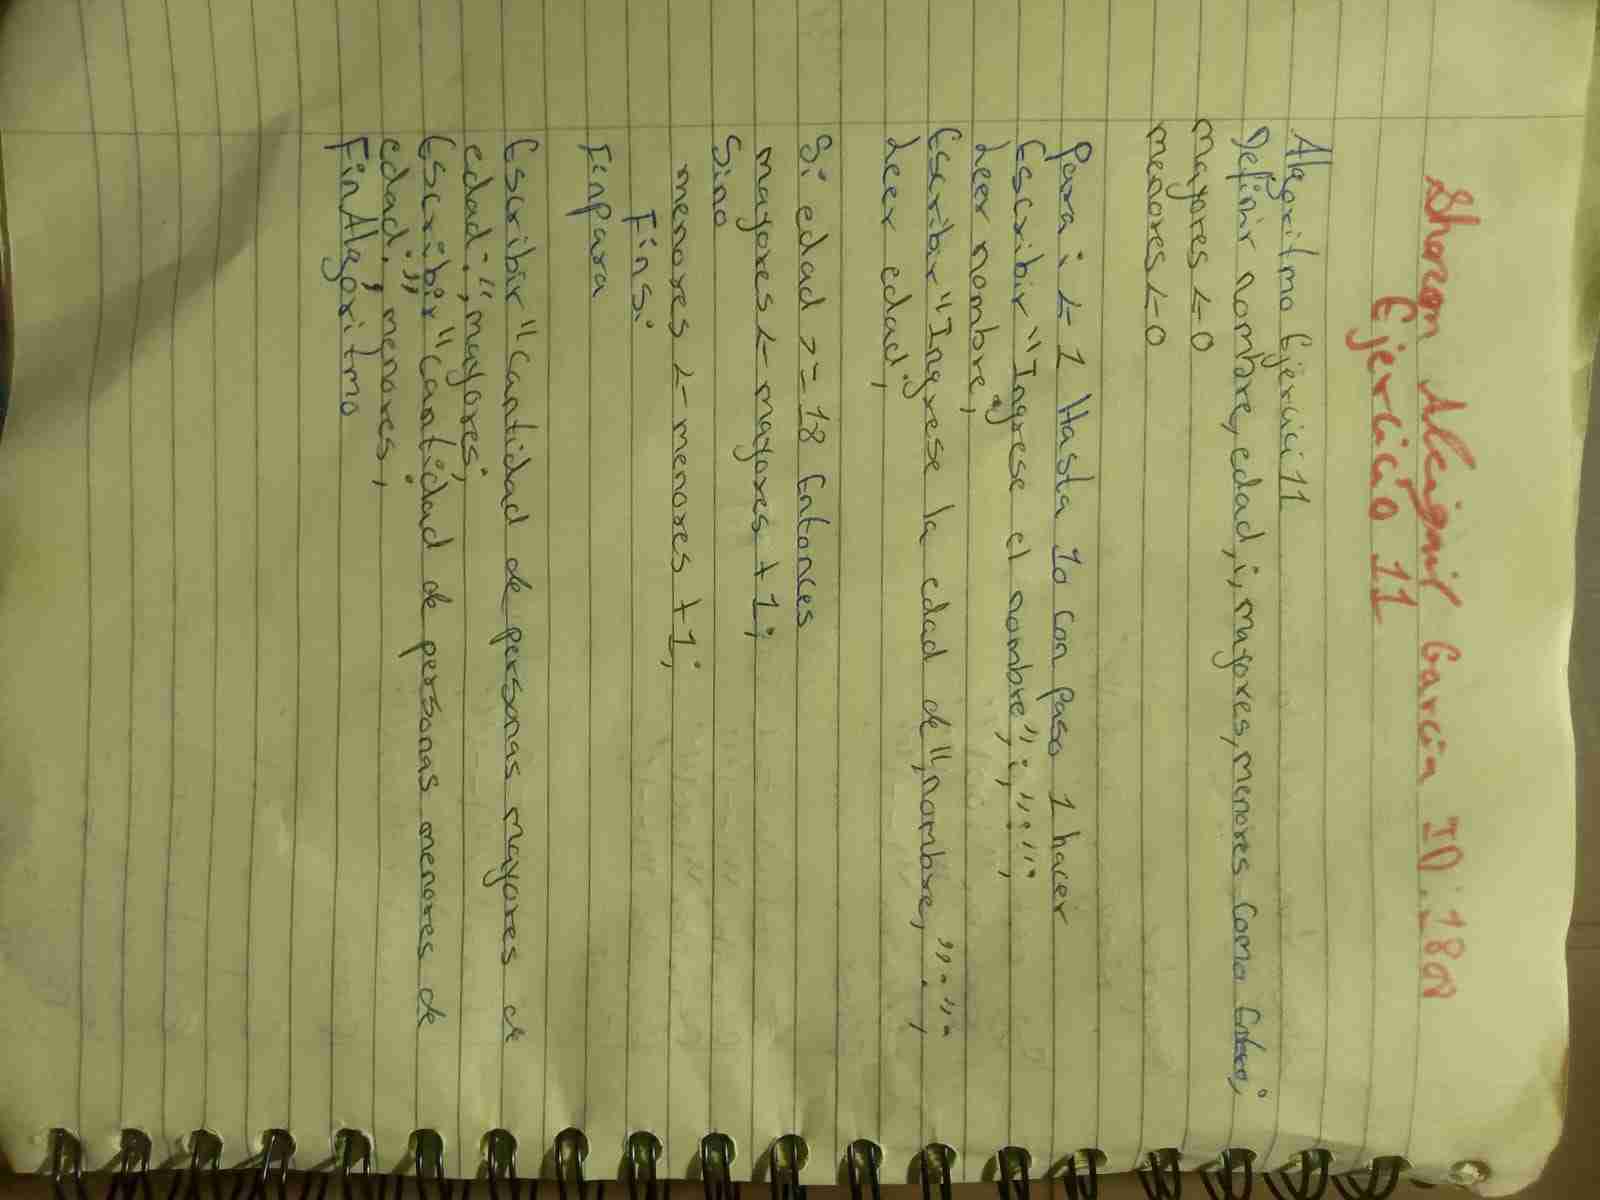 Sharon Abigail Garcia ID: 1808
Ejercicio 11
Algoritmo Ejercici11
Definir nombre, edad, i, mayores, menores como Entero;
mayores <- 0
menores <- 0
Para i <- 1 Hasta 10 con paso 1 hacer
Escribir "Ingrese el nombre", i, ":";
Leer nombre;
Escribir "Ingrese la edad de", nombre, ":";
Leer edad;
Si edad >= 18 Entonces
mayores <- mayores + 1;
Sino
menores <- menores + 1;
Finsi
Finpara
Escribir "Cantidad de personas mayores de
edad:", mayores;
Escribir "Cantidad de personas menores de
edad:", menores;
FinAlgoritmo